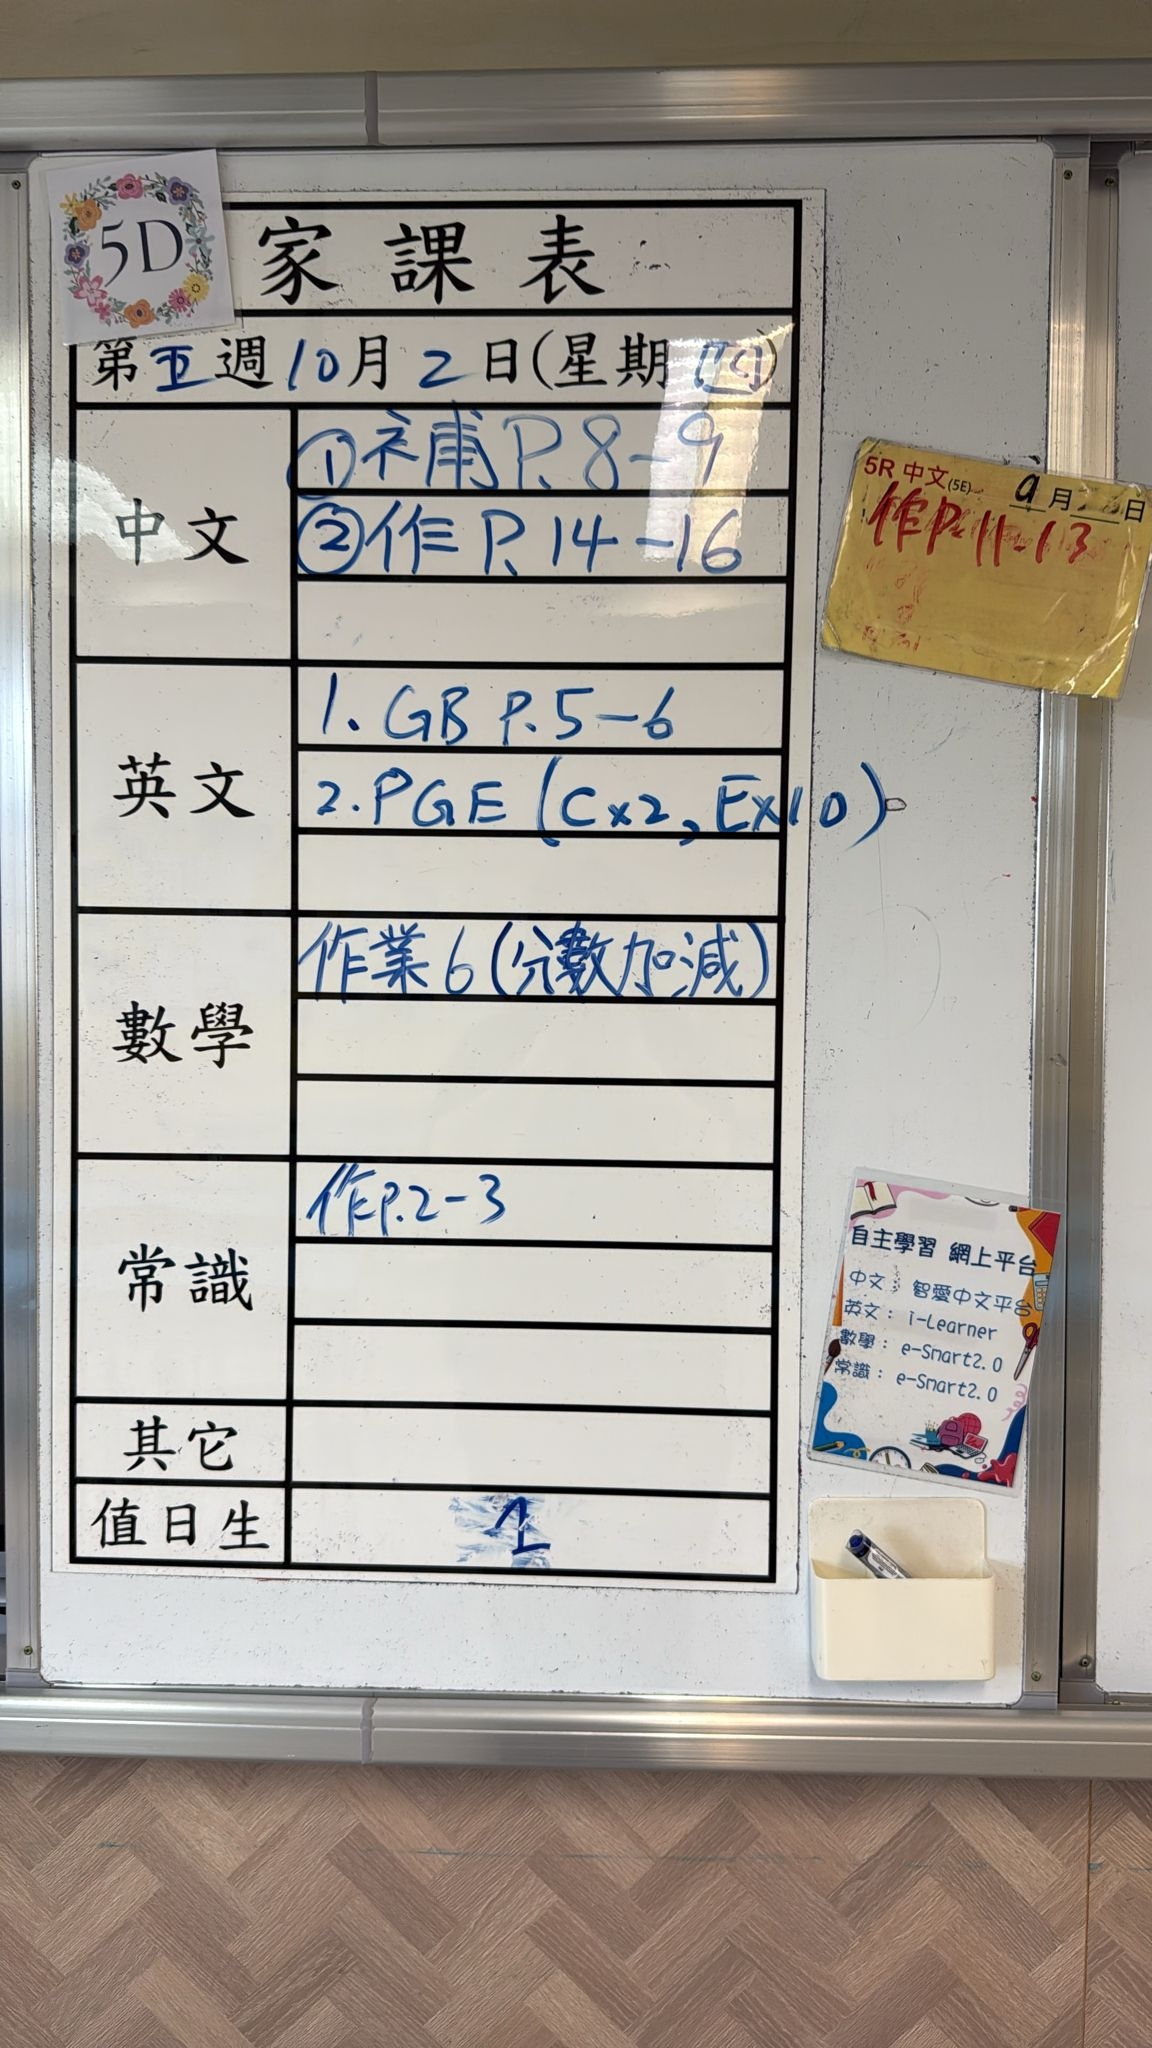 5D
家課表
第五週10月2日(星期四)
中文
①補P.8-9
②作P.14-16
英文
1. GB P.5-6
2. PGE (Cx2, Ex10)
數學
作業6(分數加減)
常識
作P.2-3
其它
值日生
1
5R 中文(5E) 9月日
作P.11-13
自主學習 網上平台
中文： 智愛中文平台
英文： i-Learner
數學： e-Smart2.0
常識： e-Smart2.0